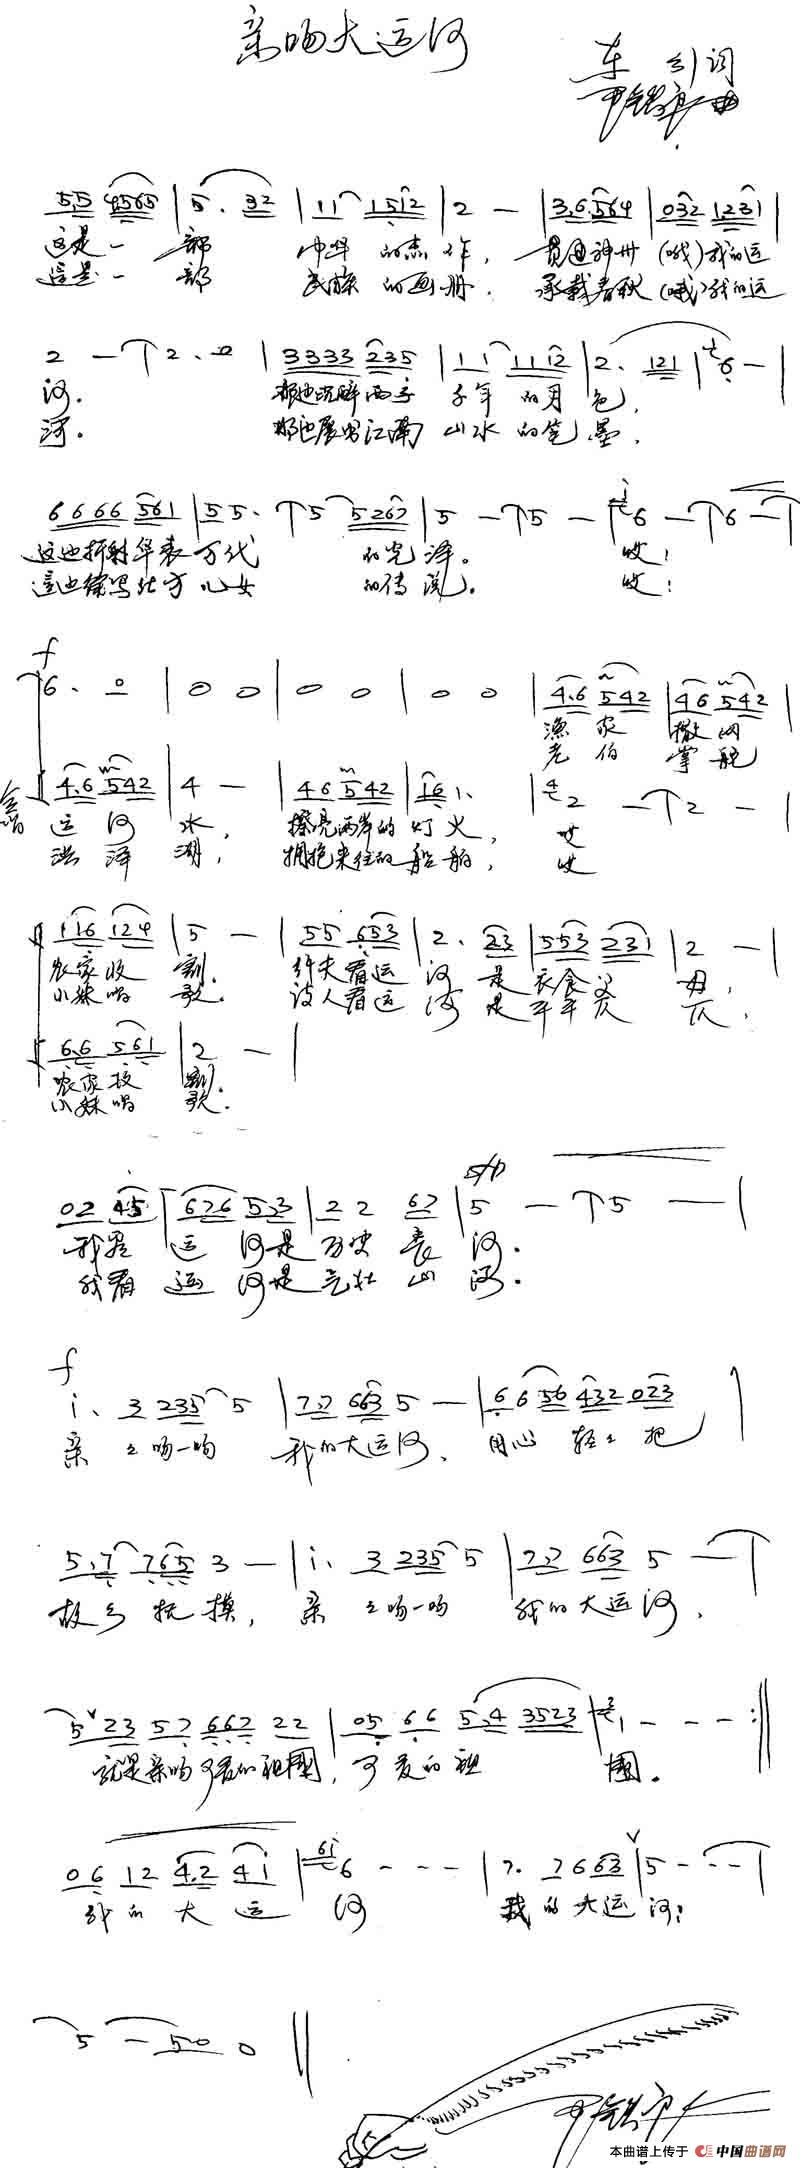 亲吻大运河
车 引 词
尹铁良 曲
5.5 4565 | 5. 32 | 11 1512 | 2 — | 3.6 564 | 032 1231 |
这是一 部 中华 的杰 作， 贯通神州 (哦)我的运
这是一 部 民族 的画 册， 承载春秋 (哦)我的运
2 — | 2. 0 | 3333 235 | 11 1112 | 2. 121 | 6 — |
河。 那边沉醉两岸 千年 的月 色，
河。 那边展出江南 山水 的笔 墨，
6666 561 | 55. | 5 5267 | 5 — | 5 — | 6 — | 6 — |
这边折射华表 万代 的光 泽。 哎！
这边续写北方 儿女 的传 说。 哎！
f
6. 0 | 0 0 | 0 0 | 0 0 | 4.6 542 | 46 542 |
渔 家 撒 网
老 伯 掌 舵
4.6 542 | 4 — | 46 542 | 16 1. | 2 — | 2 — |
合唱
运 河 水， 擦亮两岸的 灯 火， 哎
洪 泽 湖， 拥抱来往的 船 舶， 哎
116 124 | 5 — | 55 653 | 2. 23 | 553 231 | 2 — |
农家收 割。 纤夫看运 河 是 衣食 父 母，
小妹唱 歌。 诗人看运 河 是 平平仄 仄，
6.6 561 | 2 — |
农家收 割。
小妹唱 歌。
02 45 | 676 5.3 | 22 67 | 5 — | 5 — |
我看 运 河是 历史 长 河。
我看 运 河是 气壮 山 河。
f
i. 3 235 5 | 7.7 663 5 — | 6 6 56 432 023 |
亲 亲吻一吻 我的大运河， 用心 轻轻 把
5.7 765 3 — | i. 3 235 5 | 7.7 663 5 — |
故乡 抚 摸， 亲 亲吻一吻 我的大运河，
5 23 57 667 22 | 05 66 5.4 3523 | 1 — — — :||
就是亲吻可爱的祖国，可爱的祖 国。
06 12 4.2 4i | 6 — — — | 7. 7663 | 5 — — — |
我的 大 运 河 我的大运河！
5 — 50 0 ||
尹铁良
本曲谱上传于 中国曲谱网